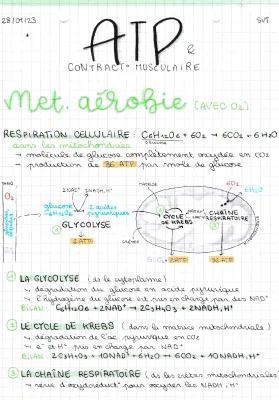 28/01/23
SVT
ATP
&
CONTRACT° MUSCULAIRE
Met. aérobie (AVEC O₂)
RESPIRATION CELLULAIRE : C₆H₁₂O₆ + 6O₂ → 6CO₂ + 6H₂O
GLUCOSE
dans les mitochondries
→ molécule de glucose complètement oxydée en CO₂
→ production de 36 ATP par mole de glucose
MATRICE
6O₂
6H₂O
2NAD⁺ 2NADH,H⁺
glucose
C₆H₁₂O₆
2 acides
pyruviques
GLYCOLYSE
2 ATP
CYCLE
DE KREBS
CHAÎNE
RESPIRATOIRE
6CO₂
2 ATP
32 ATP
1 LA GLYCOLYSE (ds le cytoplasme)
→ dégradation du glucose en acide pyruvique
→ l'hydrogène du glucose est pris en charge par des NAD⁺
BILAN C₆H₁₂O₆ + 2NAD⁺ → 2C₃H₄O₃ + 2NADH,H⁺
2 LE CYCLE DE KREBS (dans la matrice mitochondriale)
→ dégradation de l'ac pyruvique en CO₂
→ e⁻ et H⁺ pris en charge par NAD⁺
BILAN 2C₃H₄O₃ + 10NAD⁺ + 6H₂O → 6CO₂ + 10NADH,H⁺
3 LA CHAÎNE RESPIRATOIRE (ds les crêtes mitochondriales)
→ série d'oxydoréduct° pour oxyder les NADH,H⁺